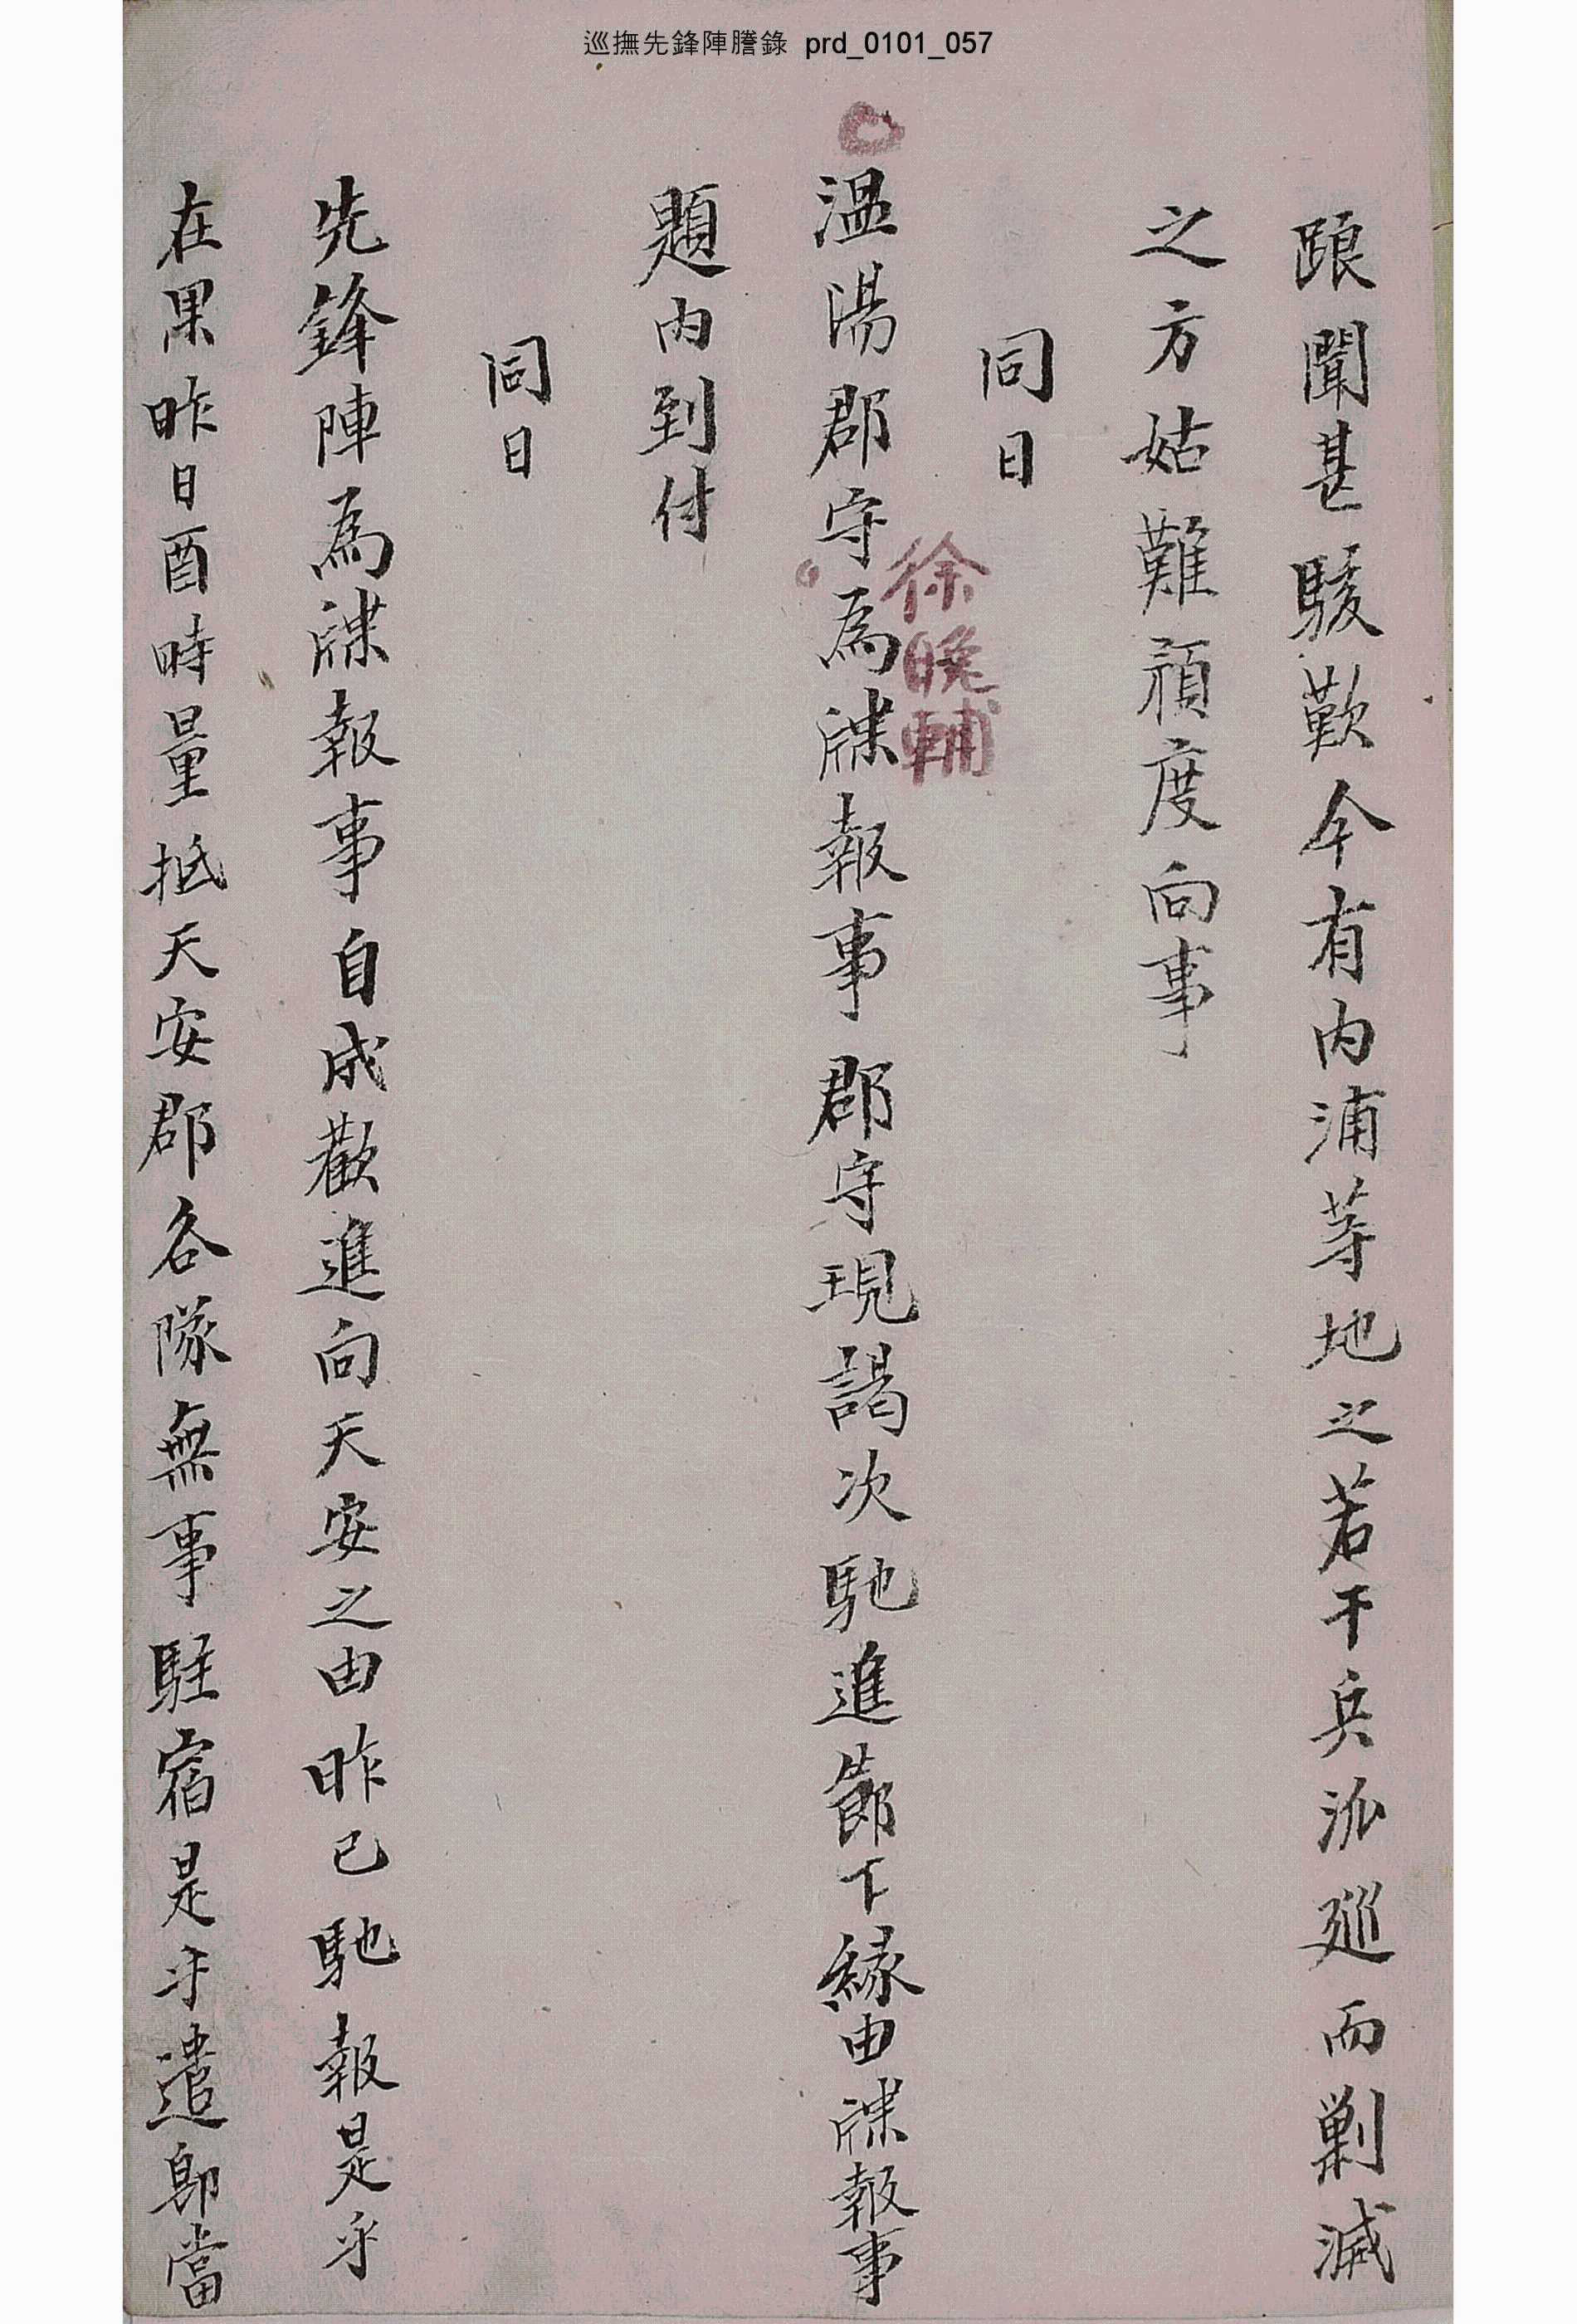 巡撫先鋒陣謄錄 prd_0101_057
踉聞甚駭歎今有內浦等地之若干兵派廵而剿滅
之方姑難預度向事
同日
徐晩輔
溫陽郡守為牒報事郡守現謁次馳進節下緣由牒報事
題內到付
同日
先鋒陣為牒報事自成歡進向天安之由昨已馳報是乎
在果昨日酉時量抵天安郡各隊無事駐宿是乎遣卽當